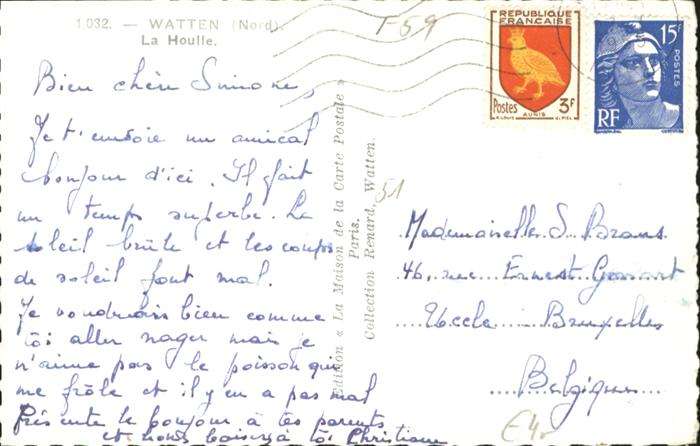 1.032. — WATTEN (Nord).
La Houlle.
T-59
RÉPUBLIQUE
FRANÇAISE
Postes 3F
AUNIS
15F
POSTES
RF
Bien chère Simone,
Je t'envoie un amical
bonjour d'ici. Il fait
un temps superbe. Le
soleil brûle et les coups
de soleil font mal.
Je voudrais bien comme
toi aller nager mais je
n'aime pas le poisson qui
me frôle et il y en a pas mal
Présente le bonjour à tes parents
et nous baisers à toi Christiane
Edition « La Maison de la Carte Postale »
Paris.
Collection Renard, Watten.
51
Mademoiselle S. Braus
46, rue Ernest Gossart
Uccle Bruxelles
Belgique
€4-